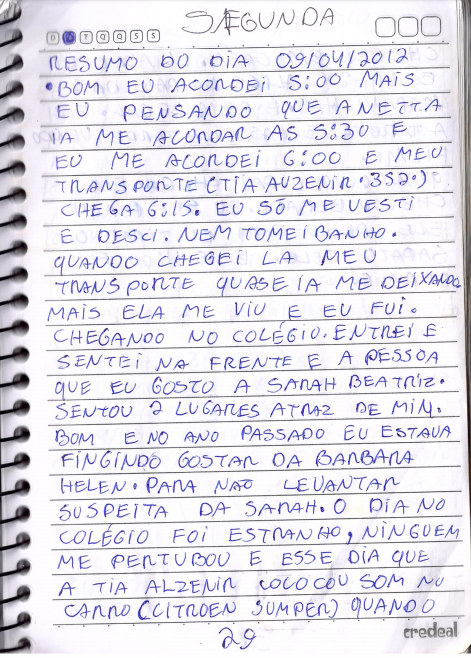 SEGUNDA
D S T Q Q S S
RESUMO DO DIA 09/04/2012
• BOM EU ACORDEI 5:00 MAIS
EU PENSANDO QUE ANETTA
IA ME ACORDAR AS 5:30 E
EU ME ACORDEI 6:00 E MEU
TRANSPORTE (TIA AUZENIR • 352•)
CHEGA 6:15. EU SÓ ME VESTI
E DESCI. NEM TOMEI BANHO.
QUANDO CHEGEI LA MEU
TRANSPORTE QUASE IA ME DEIXANDO
MAIS ELA ME VIU E EU FUI.
CHEGANDO NO COLÉGIO. ENTREI E
SENTEI NA FRENTE E A PESSOA
QUE EU GOSTO A SARAH BEATRIZ.
SENTOU 2 LUGARES ATRAZ DE MIN.
BOM E NO ANO PASSADO EU ESTAVA
FINGINDO GOSTAR DA BARBARA
HELEN. PARA NAO LEVANTAR
SUSPEITA DA SARAH. O DIA NO
COLÉGIO FOI ESTRANHO, NINGUEM
ME PERTUBOU E ESSE DIA QUE
A TIA ALZENIR COLOCOU SOM NO
CARRO (CITROEN JUMPER) QUANDO
29
credeal